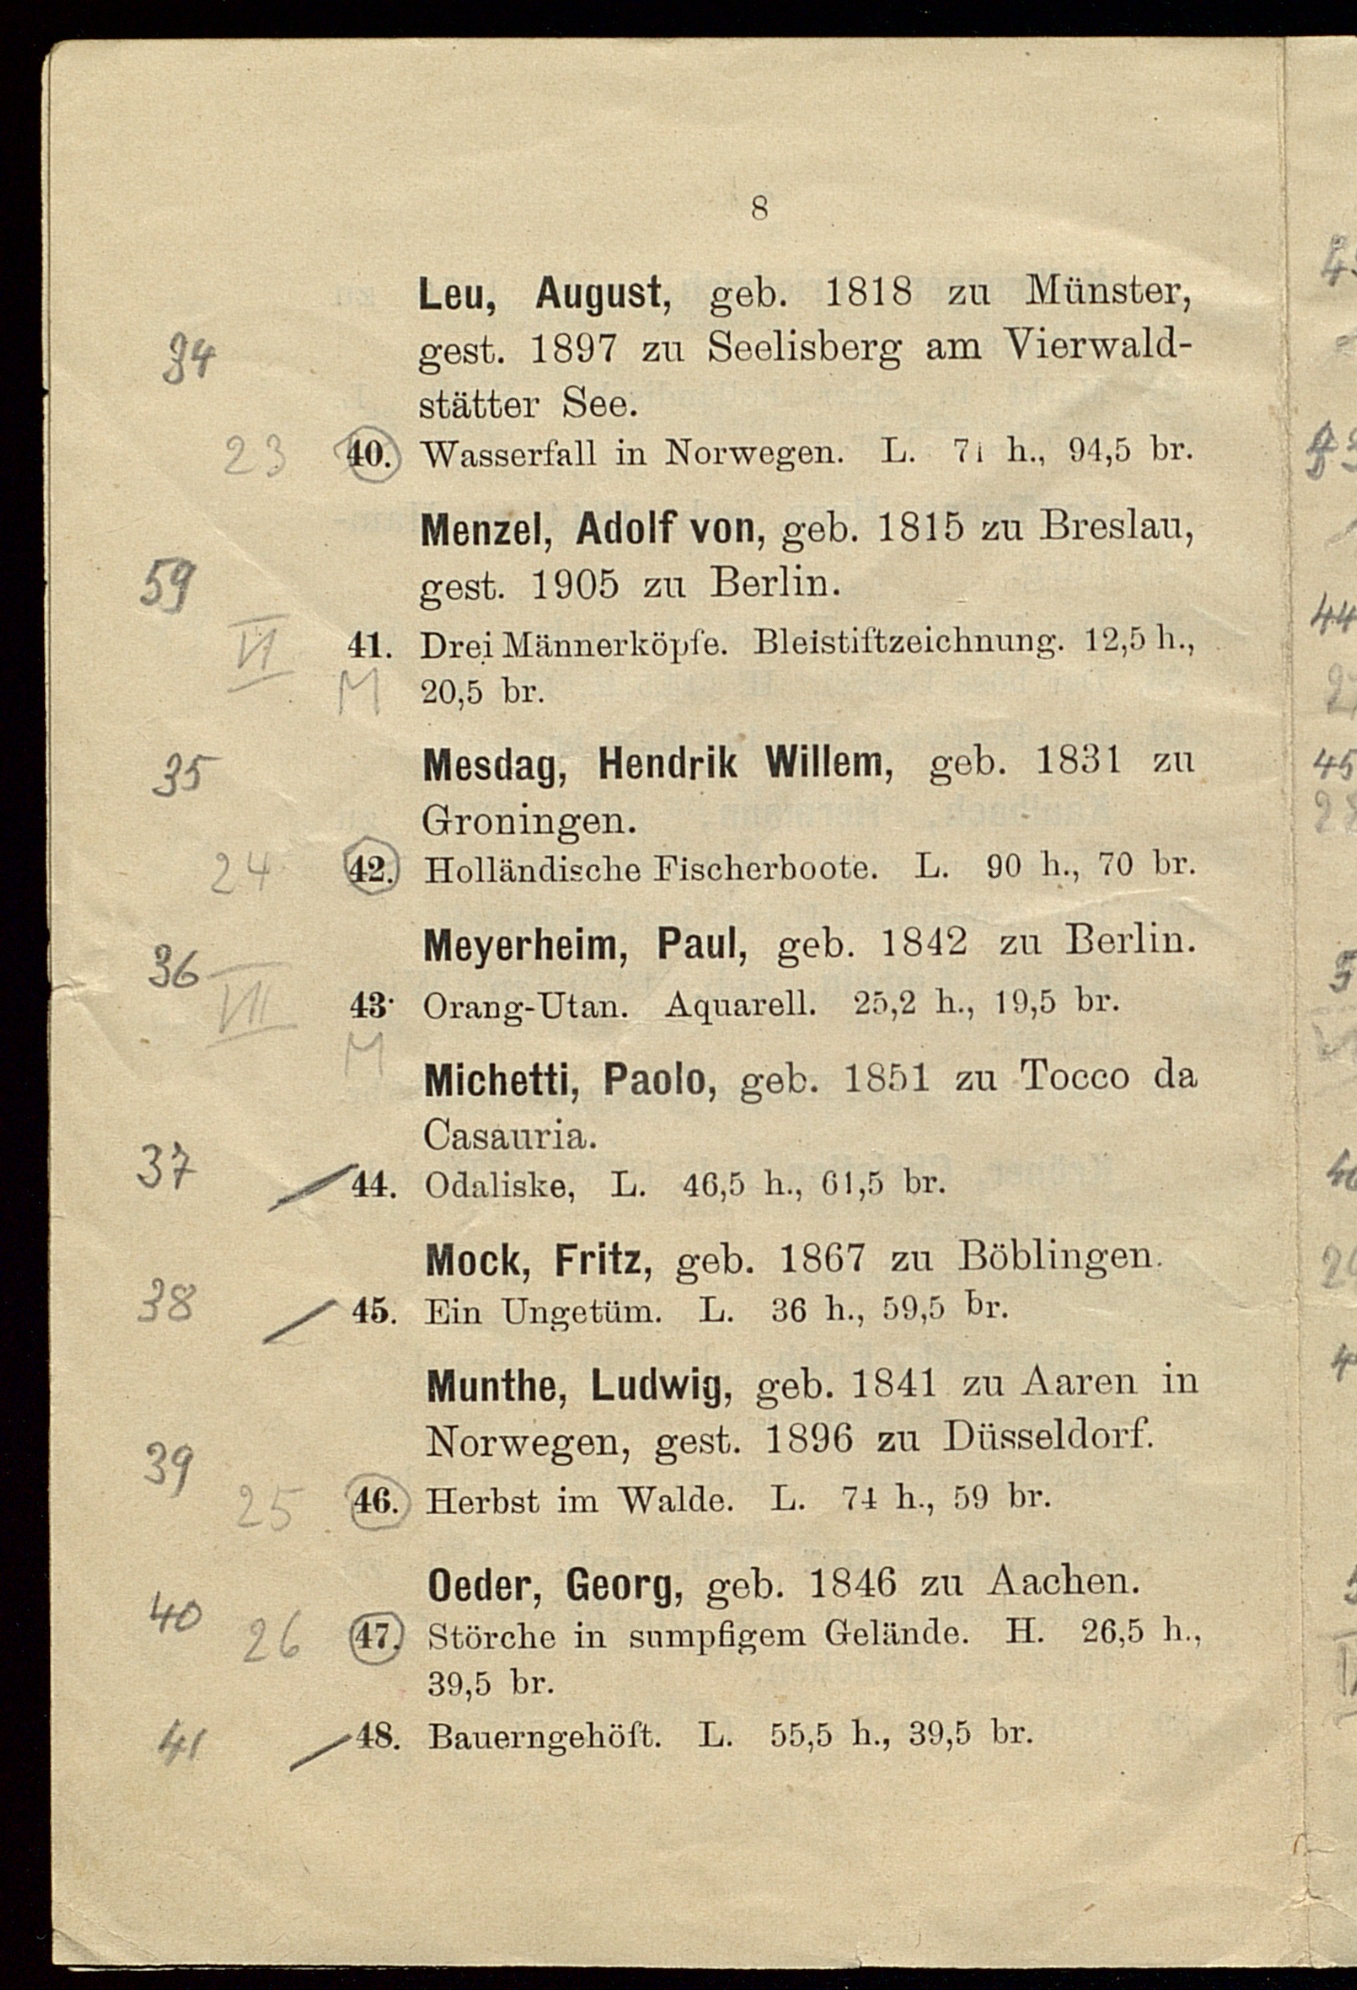 8
Leu, August, geb. 1818 zu Münster,
34
gest. 1897 zu Seelisberg am Vierwald-
stätter See.
23 40. Wasserfall in Norwegen. L. 71 h., 94,5 br.
Menzel, Adolf von, geb. 1815 zu Breslau,
59
gest. 1905 zu Berlin.
VI 41. Drei Männerköpfe. Bleistiftzeichnung. 12,5 h.,
M 20,5 br.
35
Mesdag, Hendrik Willem, geb. 1831 zu
Groningen.
24 42. Holländische Fischerboote. L. 90 h., 70 br.
36
Meyerheim, Paul, geb. 1842 zu Berlin.
VII 43. Orang-Utan. Aquarell. 25,2 h., 19,5 br.
M
Michetti, Paolo, geb. 1851 zu Tocco da
Casauria.
37 44. Odaliske, L. 46,5 h., 61,5 br.
Mock, Fritz, geb. 1867 zu Böblingen.
38 45. Ein Ungetüm. L. 36 h., 59,5 br.
Munthe, Ludwig, geb. 1841 zu Aaren in
39
Norwegen, gest. 1896 zu Düsseldorf.
25 46. Herbst im Walde. L. 74 h., 59 br.
Oeder, Georg, geb. 1846 zu Aachen.
40 26 47. Störche in sumpfigem Gelände. H. 26,5 h.,
39,5 br.
41 48. Bauerngehöft. L. 55,5 h., 39,5 br.
44
45